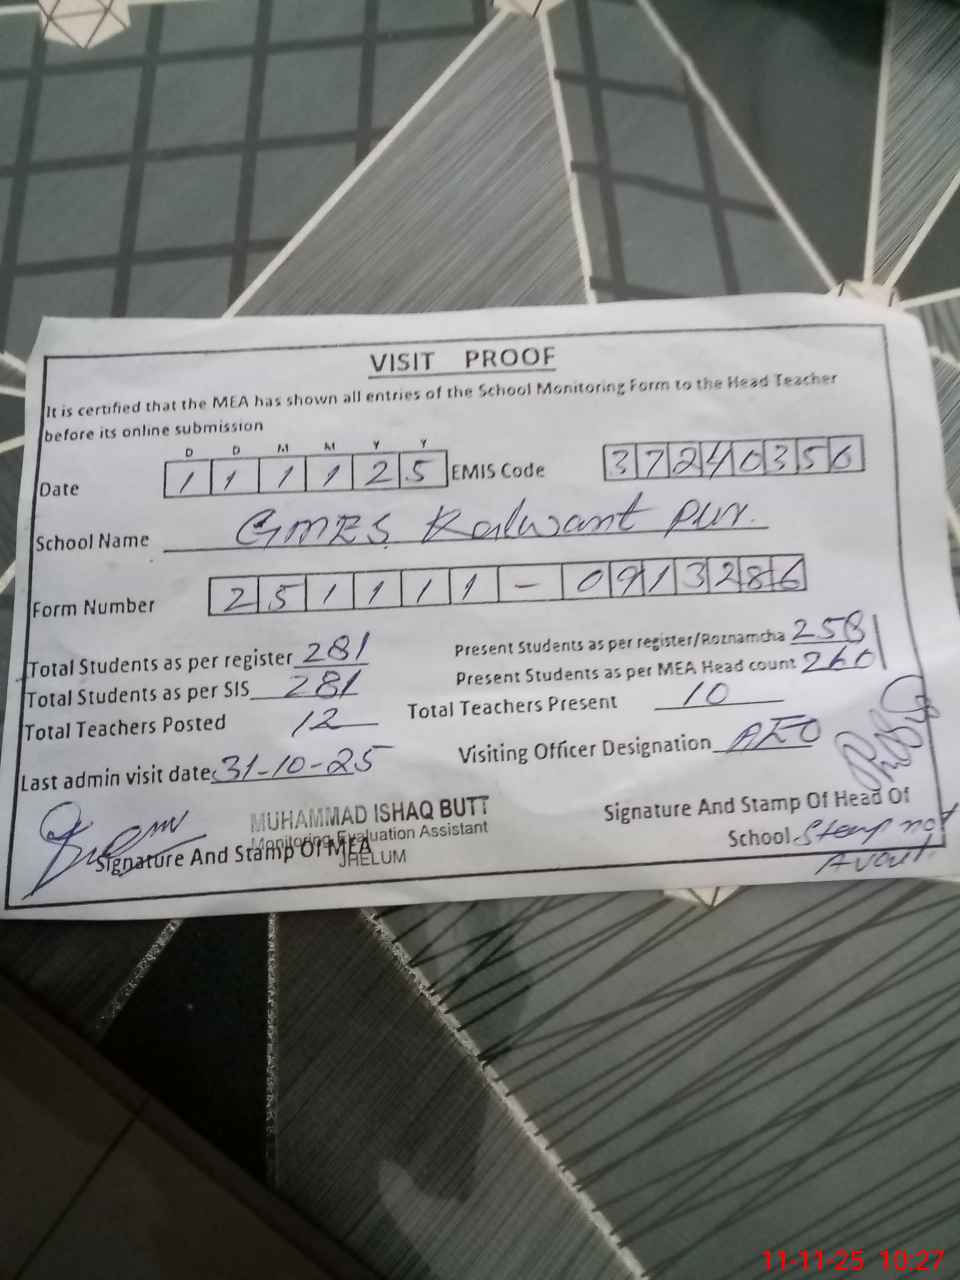 VISIT PROOF
It is certified that the MEA has shown all entries of the School Monitoring Form to the Head Teacher
before its online submission
D D M M Y Y
Date 1 1 1 1 2 5 EMIS Code 3 7 2 4 0 3 5 6
School Name GMES Kalwant pur.
Form Number 2 5 1 1 1 1 - 0 9 1 3 2 8 6
Total Students as per register 281 Present Students as per register/Roznamcha 258
Total Students as per SIS 281 Present Students as per MEA Head count 260
Total Teachers Posted 12 Total Teachers Present 10
Last admin visit date 31-10-25 Visiting Officer Designation AEO
MUHAMMAD ISHAQ BUTT
Monitoring Evaluation Assistant
JHELUM
Signature And Stamp Of MEA
Signature And Stamp Of Head Of
School Stemp not
Avail.
11-11-25 10:27